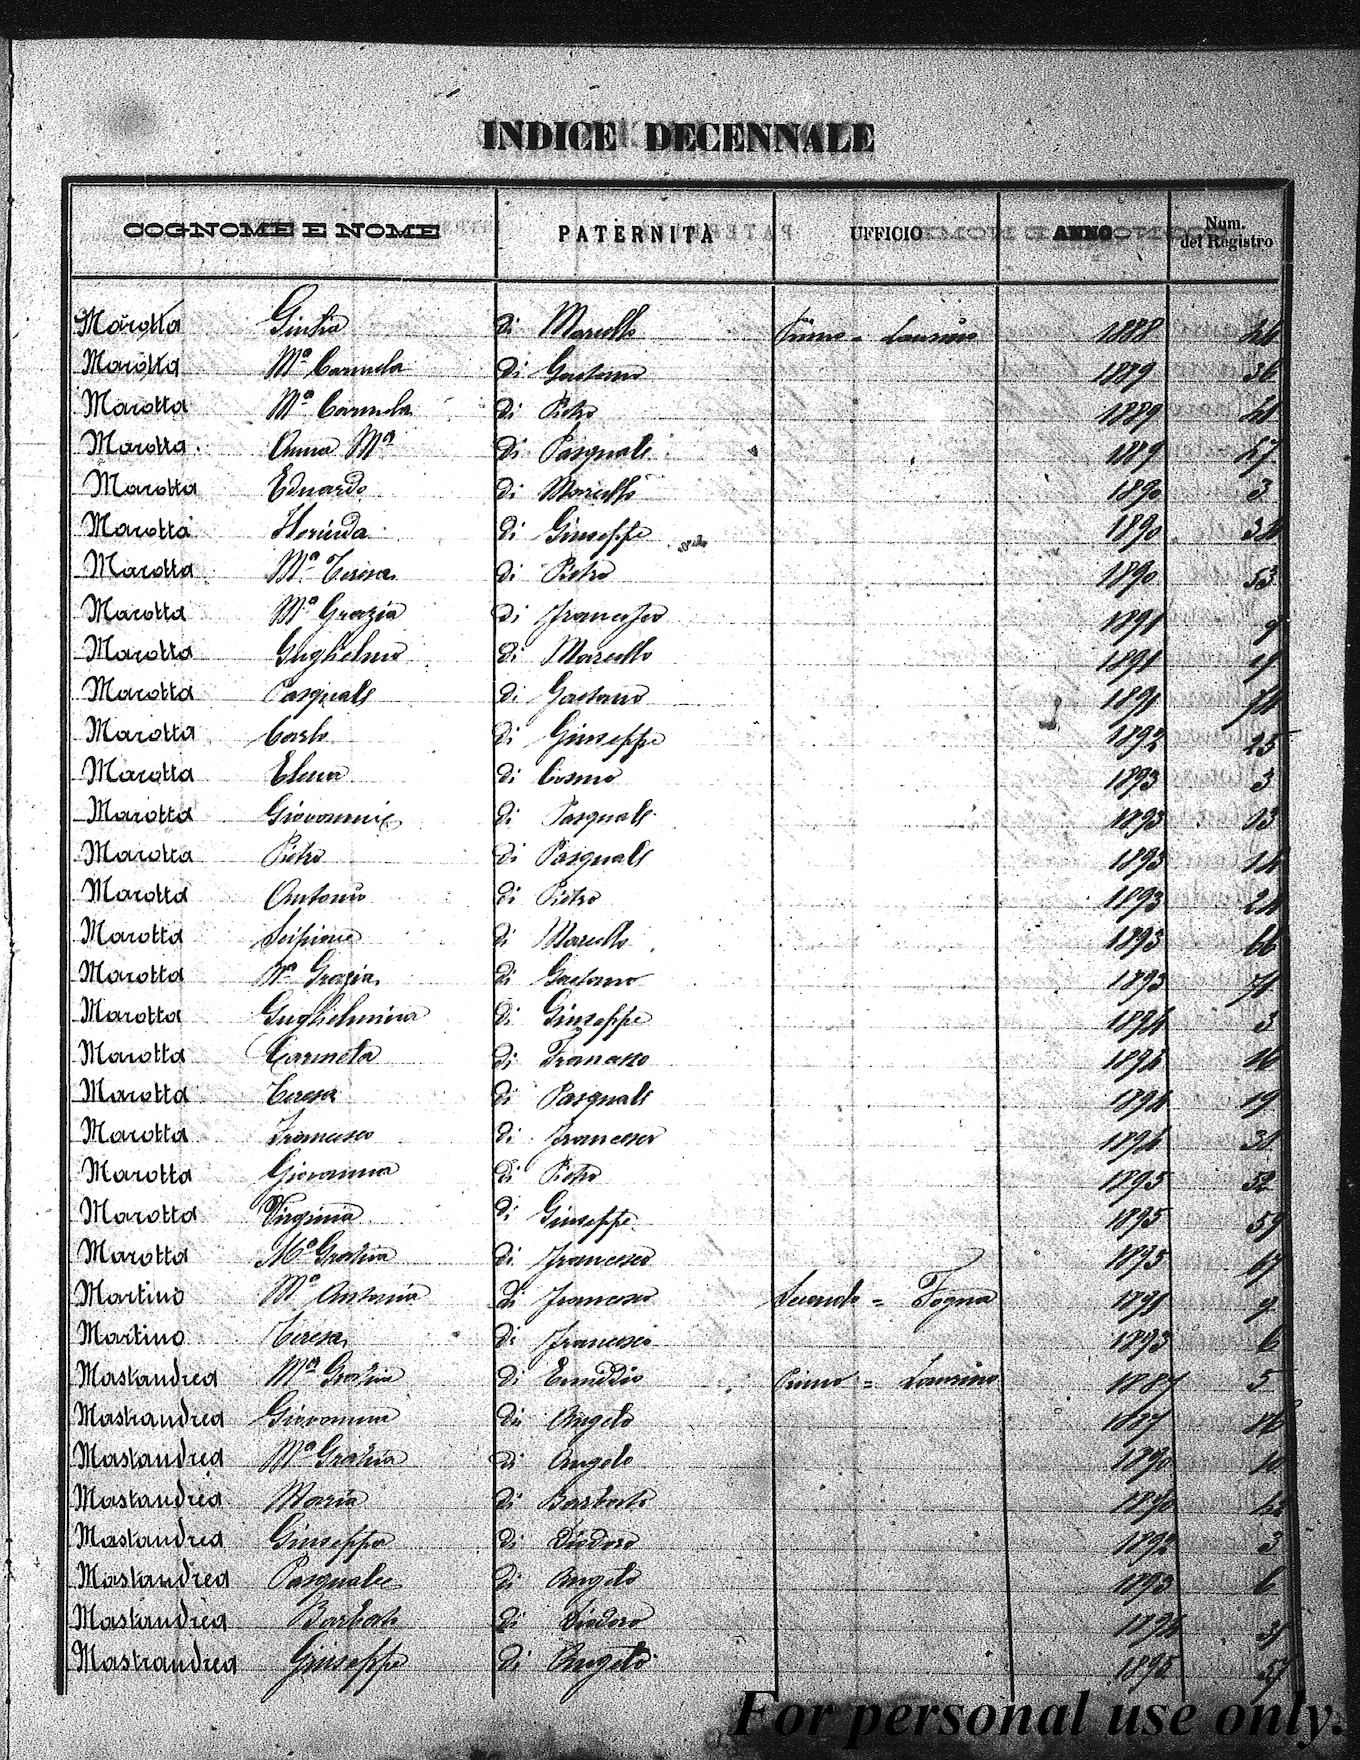 INDICE DECENNALE
COGNOME E NOME PATERNITÀ UFFICIO ANNO Num. del Registro
Marotta Giulia di Marcello Primo = Laurino 1888
Marotta Mª Carmela di Gaetano 1889 36
Marotta Mª Carmela di Pietro 1889
Marotta Anna Mª di Pasquale 1889
Marotta Eduardo di Marcello 1890 3
Marotta di Giuseppe 1890
Marotta Mª Teresa di Pietro 1890 53
Marotta Mª Grazia di Francesco 1891 9
Marotta Guglielmo di Marcello 1891
Marotta Pasquale di Gaetano 1891
Marotta Carlo di Giuseppe 1892 25
Marotta Elena di Cosmo 1893 3
Marotta Giovannie di Pasquale 1893 13
Marotta Pietro di Pasquale 1893 14
Marotta Antonio di Pietro 1893 24
Marotta Scipione di Marcello 1893 66
Marotta Mª Grazia di Gaetano 1893
Marotta Guglielmina di Giuseppe 1894 3
Marotta di Francesco 1894 16
Marotta Teresa di Pasquale 1894 19
Marotta Francesco di Francesco 1894
Marotta Giovanna di Pietro 1895 52
Marotta Virginia di Giuseppe 1895 59
Marotta Mª Grazia di Francesco 1895
Martino Mª Antonia di Francesco Secondo = Fogna 1891 9
Martino Teresa di Francesco 1893 6
Mastandrea Mª Grazia di Emiddio Primo = Laurino 1887 5
Mastrandrea Giovanna di Angelo 1887
Mastandrea Mª Grazia di Angelo 1890 10
Mastandrea Maria di Barbato 1890
Mastandrea Giuseppa di Diodoro 1892 3
Mastandrea Pasquale di Angelo 1893 6
Mastandrea Barbato di Diodoro 1894
Mastrandrea Giuseppe di Angelo 1895 57
For personal use only.